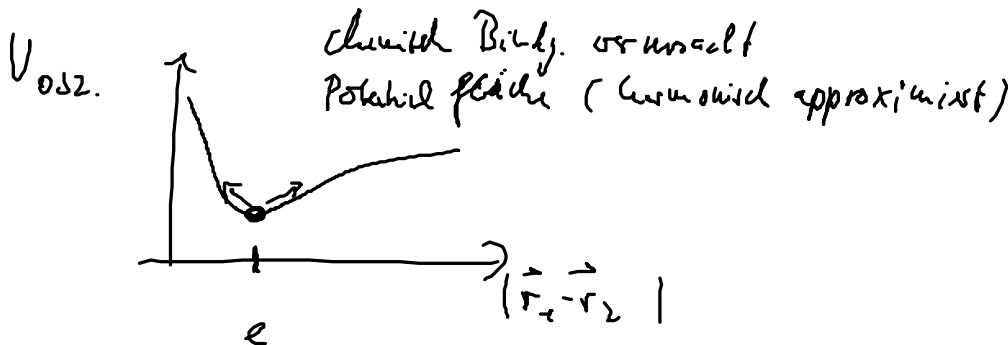 chemisch Bindg. verursacht
U osz. Potentialfläche (harmonisch approximiert)
|r₁-r₂|
e